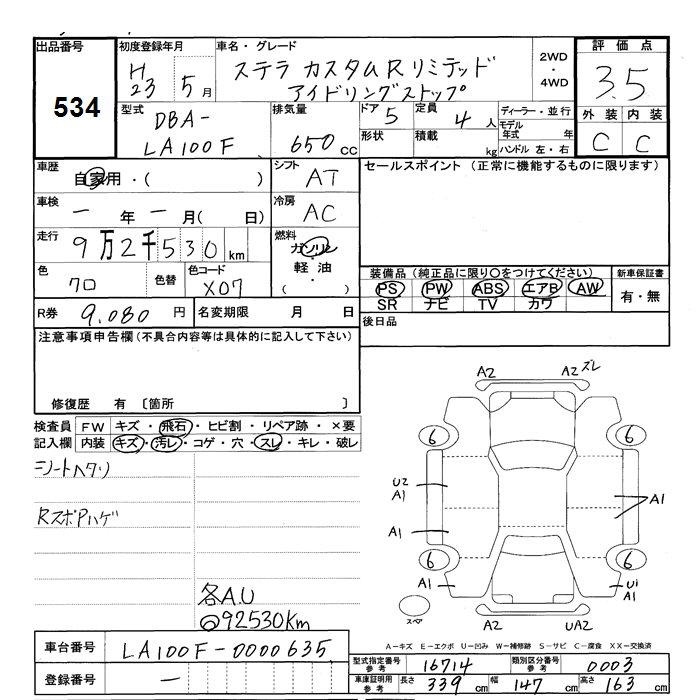 出品番号
534
初度登録年月
H23 5月
車名・グレード
ステラ カスタムRリミテッド
アイドリングストップ
2WD
・
4WD
評価点
3.5
外装 内装
C C
型式
DBA-
LA100F
排気量
650cc
ドア 5
形状
定員 4人
積載 kg
ディーラー・並行
モデル年式 年
ハンドル 左・右
車歴
自家用・( )
シフト
AT
車検
一年一月( 日)
冷房
AC
走行
9万2千530km
燃料
ガソリン
軽油
( ・ )
色
クロ
色替
色コード
X07
R券 9.080円
名変期限 月 日
セールスポイント (正常に機能するものに限ります)
装備品(純正品に限り○をつけてください)
PS PW ABS エアB AW
SR ナビ TV カワ
新車保証書
有・無
後日品
注意事項申告欄(不具合内容等は具体的に記入して下さい)
修復歴 有〔箇所 〕
検査員記入欄
FW キズ・飛石・ヒビ割・リペア跡・×要
内装 キズ・汚レ・コゲ・穴・スレ・キレ・破レ
シートヘタリ
RスポPハゲ
各A.U
92530Km
A2 A2 ズレ
6 6
U2
A1
A1
A1
6 6
A1
U1
A1
スペア
A2 UA2
A-キズ E-エクボ U-凹み W-補修跡 S-サビ C-腐食 XX-交換済
車台番号 LA100F-0000635
登録番号 一
型式指定番号 参考 16714
類別区分番号 参考 0003
車庫証明用 参考 長さ 339cm 幅 147cm 高さ 163cm